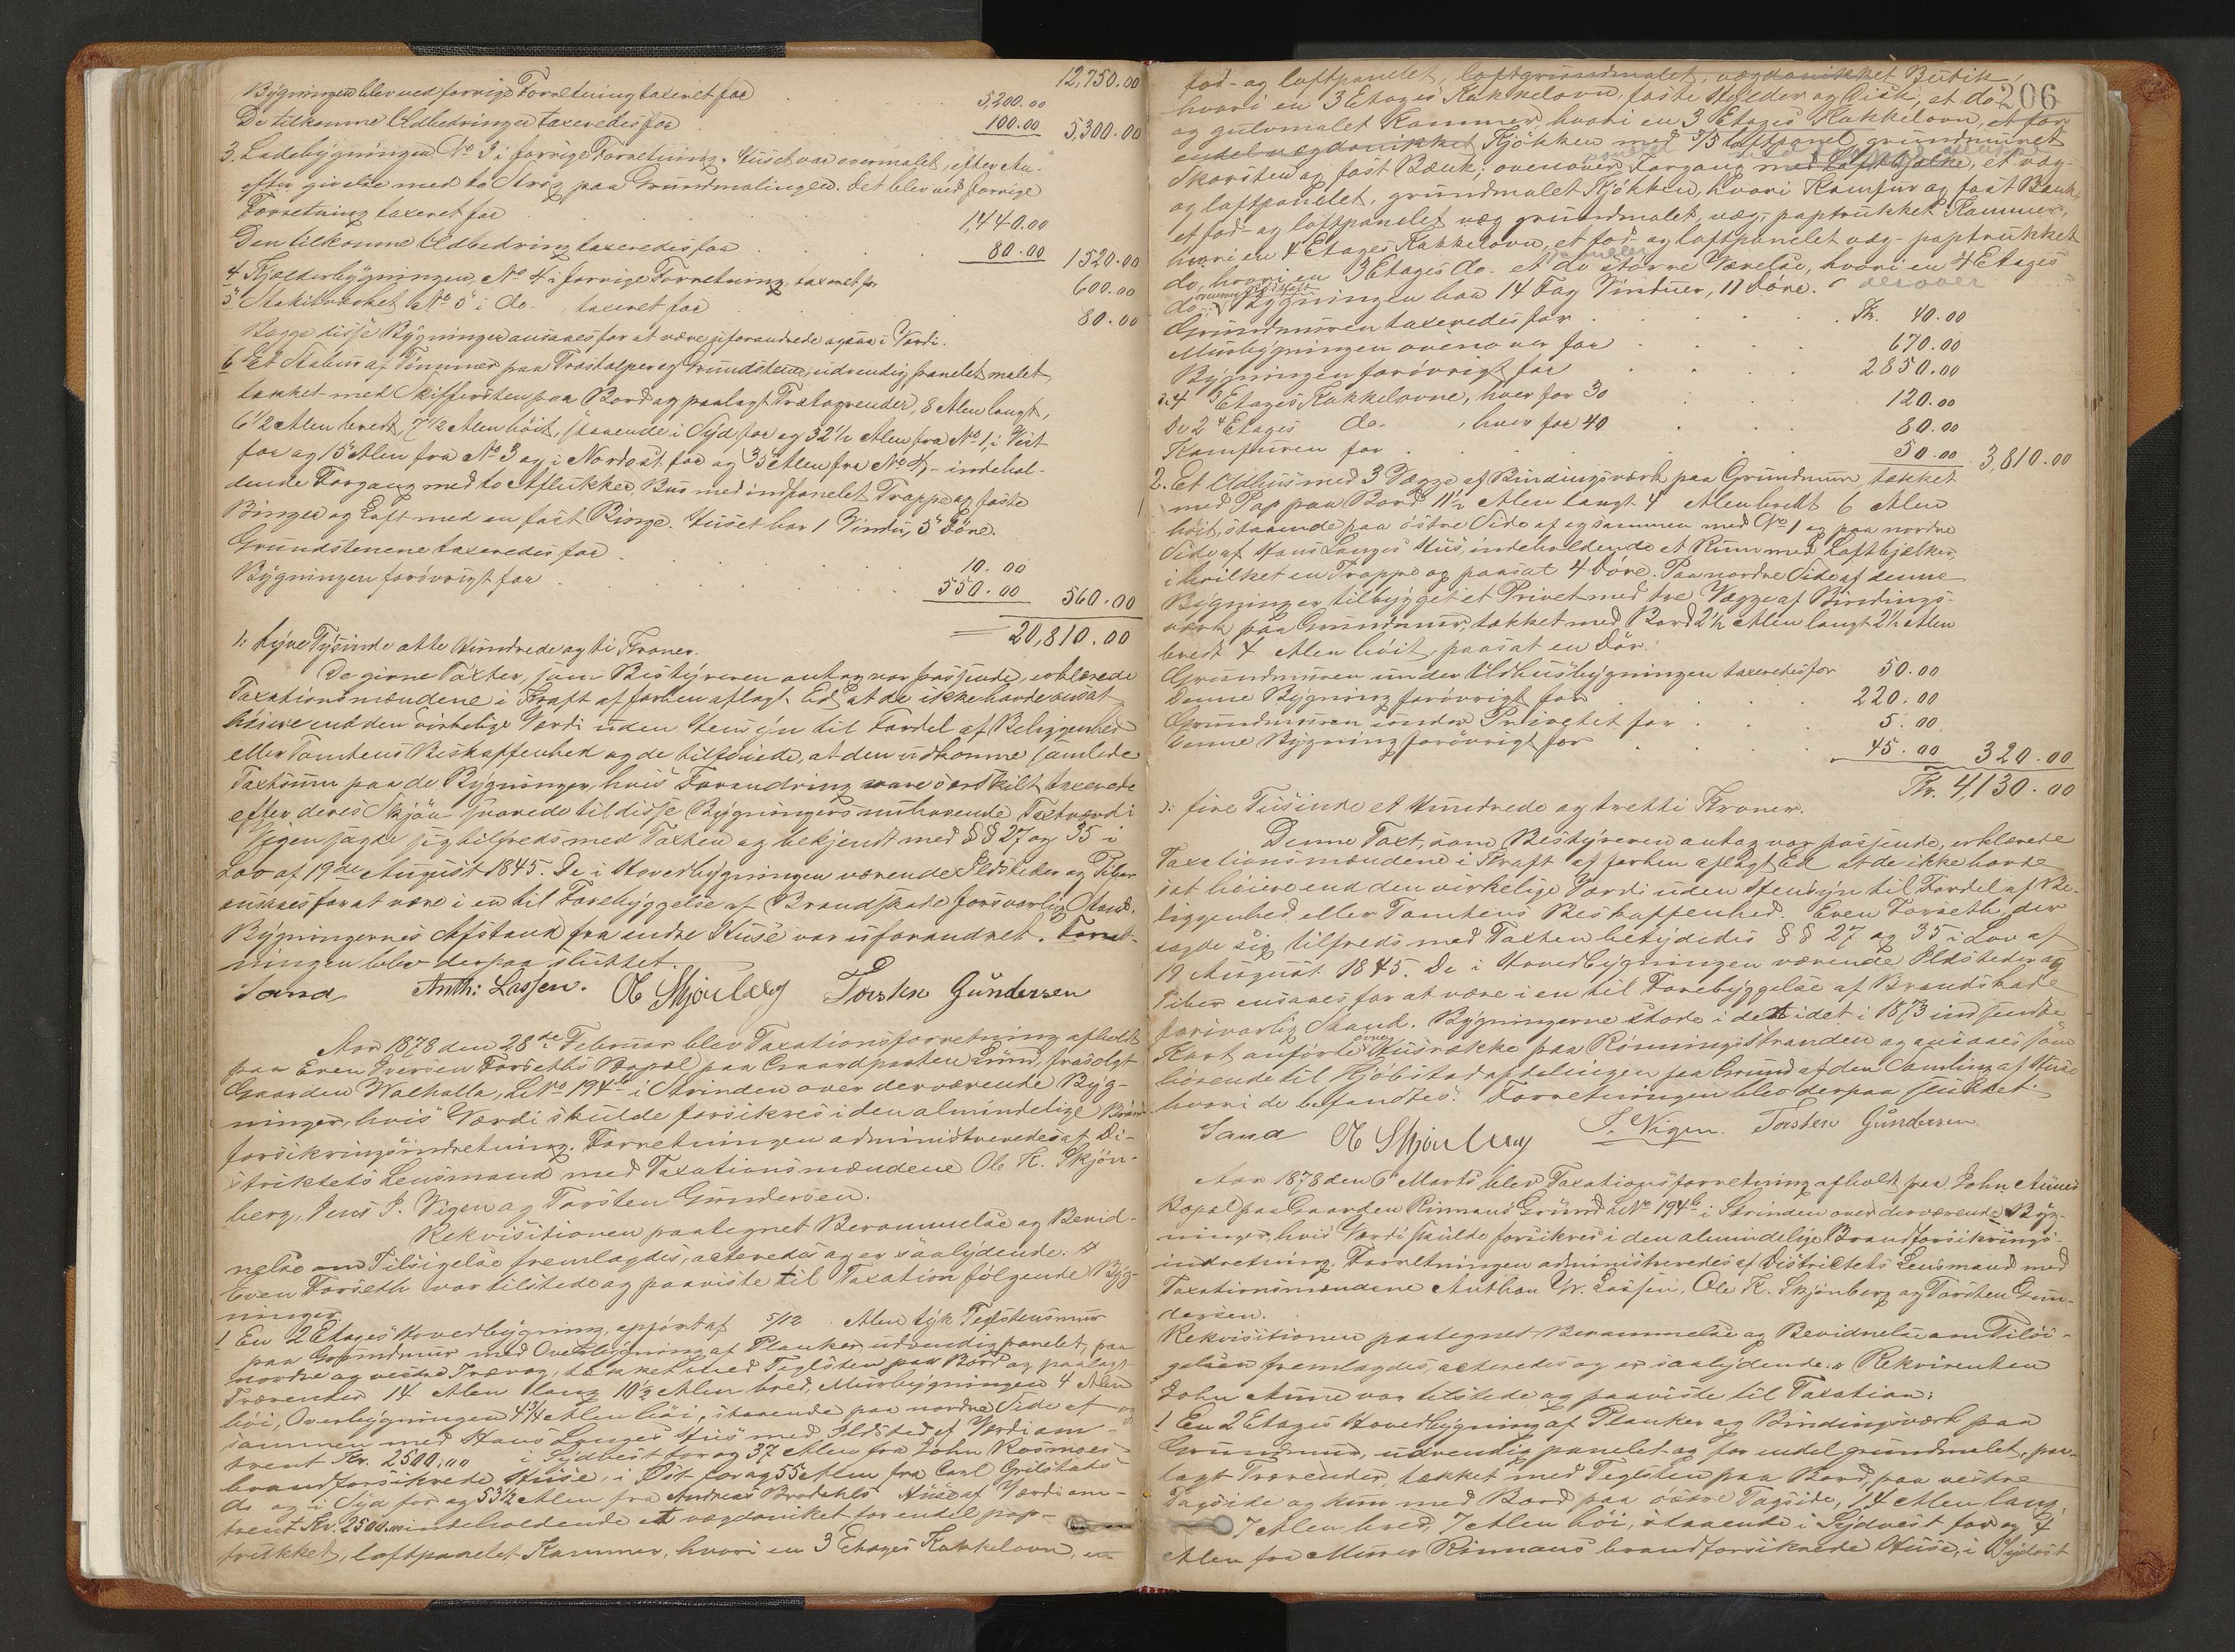 12,750.00
Bygningen blev ved forrige Forretning taxeret for 5,200.00
De tilkomne Udbedringer taxeredes for 100.00 5,300.00
3. Ladebygningen No 3 i forrige Forretning. Huset var overmalet, efter An-
giver med to Strøg paa Grundmalingen. Det blev ved forrige
Forretning taxeret for 1,440.00
Den tilkomne Udbedring taxeredes for 80.00 1520.00
4 Kjælderbygningen, No 4 i forrige Forretning, taxeret for 600.00
5 Stakitværket No 5 i do. taxeret for 80.00
Begge disse Bygninger ansaaes for at være uforandrede ogsaa i Værdi.
6 Et Stabur af Tømmer paa Træstolper og Grundstene, udvendig panelet malet,
tækket med Skiffersten paa Bord og paalagt Tretagrender, 8 Alen langt,
6 1/2 Alen bredt, 7 1/2 Alen høit, staaende i Syd for og 32 1/2 Alen fra No 1, i Vest
for og 15 Alen fra No 3 og i Nordost for og 35 Alen fra No 4, - indehol-
dende Forgang med to Aflukker, Bur med indpanelet Trappe og faste
Binger og Loft med en fast Binge. Huset har 1 Vindu, 5 Døre.
Grundstenene taxeredes for 10.00
Bygningen forøvrigt for 550.00 560.00
20,810.00
ɔ: tyve Tusinde otte Hundrede og ti Kroner.
De givne Taxter, som Bestyreren antog var passende, erklærede
Taxationsmændene i Kraft af forhen aflagt Ed, at de ikke havde ansat
høiere end den virkelige Værdi uden Hensyn til Fordel af Beliggenhed
eller Tomtens Beskaffenhed og de tilføiede, at den udkomne samlede
Taxtsum paa de Bygninger, hvis Forandring vare særskilt taxerede
efter deres Skjøn svarede til disse Bygningers nuhavende Taxtværdi
Eieren sagde sig tilfreds med Taxten og bekjendt med §§ 27 og 35 i
Lov af 19de August 1845. De i Hovedbygningen værende Ildsteder og Piber
ansaaes for at være i en til Forebyggelse af Brandskade forsvarlig Stand.
Bygningernes Afstand fra andre Huse var uforandret. Forret-
ningen blev derpaa sluttet.
Sand Anth: Lassen. O K Skjønberg Torsten Gundersen
Aar 1878 den 28de Februar blev Taxationsforretning afholdt
paa Even Iversen Forseths Bopæl paa Gaardparten Lund, frasolgt
Gaarden Walhalla, L.No 194b i Strinden over derværende Byg-
ninger, hvis Værdi skulde forsikres i den almindelige Brand-
forsikringsindretning. Forretningen administreredes af Di-
striktets Lensmand med Taxationsmændene Ole K. Skjøn-
berg, Jens J. Vigen og Torsten Gundersen.
Rekvisitionen paategnet Berammelse og Bevid-
nelse om Tilsigelse fremlagdes, acteredes og er saalydende:
Even Forseth var tilstede og paaviste til Taxation følgende Byg-
ninger
1 En 2 Etages Hovedbygning, opført af 5/12 Alen tyk Teglstensmur
paa Grundmur med Overbygning af Planker, udvendig panelet, paa
nordre og vestre Trævæg, tækket med Teglsten paa Bord og paalagt
Trærender 14 Alen lang 10 1/2 Alen bred, Murbygningen 4 Alen
høi, Overbygningen 4 3/4 Alen høi, staaende paa nordre Side af og
sammen med Hans Langes Hus med Ildsted af Værdi om-
trent Kr. 2500.00 i Sydvest for og 37 Alen fra John Rosmoes
brandforsikrede Huse, i Øst for og 55 Alen fra Carl Grilstads
do og i Syd for og 53 1/2 Alen fra Andreas Brodahls Huse af Værdi om-
trent Kr. 2500.00 indeholdende et vægdanikket for endel pap-
trukket, loftpanelet Kammer, hvori en 3 Etages Kakkelovn, en
206
fod- og loftpanelet, loftgrundmalet, vægdanikket Butik,
hvori en 3 Etages Kakkelovn, faste Hylder og Disk, et do
og gulvmalet Kammer, hvori en 3 Etages Kakkelovn, et for
endel vægdanikket Kjøkken med 2/3 loftpanel, grundmuret
Skorsten og fast Bænk; ovenover Forgang med Loftbjælke, et væg-
og loftpanelet, grundmalet Kjøkken, hvori Komfur og fast Bænk,
et fod- og loftpanelet væg grundmalet, væg-paptrukket Kammer,
hvori en 4 Etages Kakkelovn, et fod- og loftpanelet væg-paptrukket
do, hvori en 3 Etages do. et do større Værelse, hvori en 4 Etages
do. Bygningen har 14 Fag Vinduer, 11 Døre. derover
Grundmuren taxeredes for Kr. 40.00
Murbygningen ovenover for 670.00
Bygningen forøvrigt for 2850.00
De 4 3 Etages Kakkelovne, hver for 30 120.00
De 2 4 Etages do. , hver for 40 80.00
Komfuren for 50.00 3,810.00
2. Et Udhus med 3 Vægge af Bindingsværk paa Grundmur tækket
med Pap paa Bord 11 1/2 Alen langt 4 Alen bredt 6 Alen
høit, staaende paa østre Side af og sammen med No 1 og paa nordre
Side af Hans Langes Hus, indeholdende et Rum med Loftbjelker,
i hvilket en Trappe og paasat 4 Døre. Paa nordre Side af denne
Bygning er tilbygget et Privet med tre Vægge af Bindings-
værk paa Grundmur, tækket med Bord 2 1/2 Alen langt 2 1/2 Alen
bredt 4 Alen høit, paasat en Dør.
Grundmuren under Udhusbygningen taxeredes for 50.00
Denne Bygning forøvrigt for 220.00
Grundmuren under Privetet for 5.00
Denne Bygning forøvrigt for 45.00 320.00
Kr. 4,130.00
ɔ: fire Tusinde et Hundrede og tretti Kroner.
Denne Taxt, som Bestyreren antog var passende, erklærede
Taxationsmændene i Kraft af forhen aflagt Ed at de ikke havde
sat høiere end den virkelige Værdi uden Hensyn til Fordel af Be-
liggenhed eller Tomtens Beskaffenhed. Even Forseth, der
sagde sig tilfreds med Taxten betydedes §§ 27 og 35 i Lov af
19 August 1845. De i Hovedbygningen værende Ildsteder og
Piber ansaaes for at være i en til Forebyggelse af Brandskade
forsvarlig Stand. Bygningerne stode i det i det i 1873 indsendte
Kart anførte Husrække paa Rønningsstranden og ansaaes som
hørende til Kjøbstadafdelingen paa Grund af den Samling af Huse
hvori de befandtes. Forretningen blev derpaa sluttet.
Sand O K Skjønberg J. Vigen. Torsten Gundersen
Aar 1878 den 6 Marts blev Taxationsforretning afholdt paa John Aunes
Bopæl paa Gaarden Rinnans Grund L.No 194b i Strinden over derværende Byg-
ninger, hvis Værdi skulde forsikres i den almindelige Brandforsikrings-
indretning. Forretningen administreredes af Districtets Lensmand med
Taxationsmændene Anthon W. Lassen, Ole K. Skjønberg og Torsten Gun-
dersen.
Rekvisitionen paategnet Berammelse og Bevidnelse om Tilsi-
gelsen fremlagdes, acteredes og er saalydende. Rekvirenten
John Aune var tilstede og paaviste til Taxation:
1 En 2 Etages Hovedbygning af Planker og Bindingsværk paa
Grundmur, udvendig panelet og for endel grundmalet, paa-
lagt Trærender, tækket med Teglsten paa Bord, paa vestre
Tagside og kun med Bord paa østre Tagside, 14 Alen lang,
7 Alen bred, 7 Alen høi, staaende i Sydvest for og 4
Alen fra Murer Rinnans brandforsikrede Huse, i Sydost